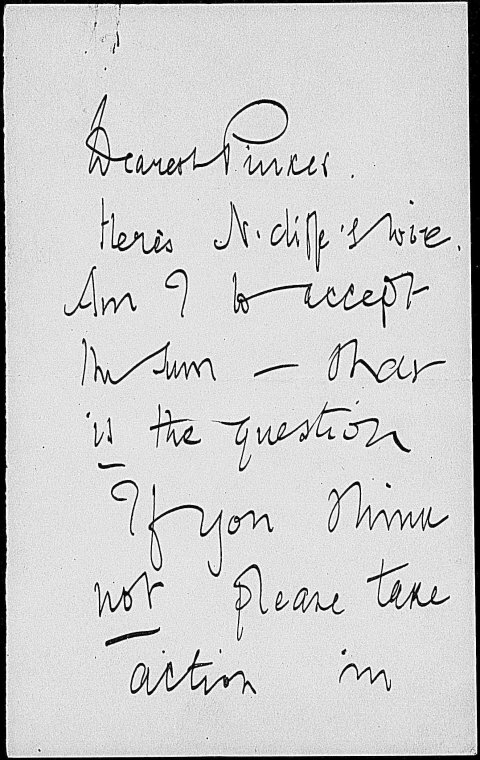 Dearest Pinker.
Here's N.cliffe's wire.
Am I to accept
the sum — that
is the question
If you think
not please take
action in